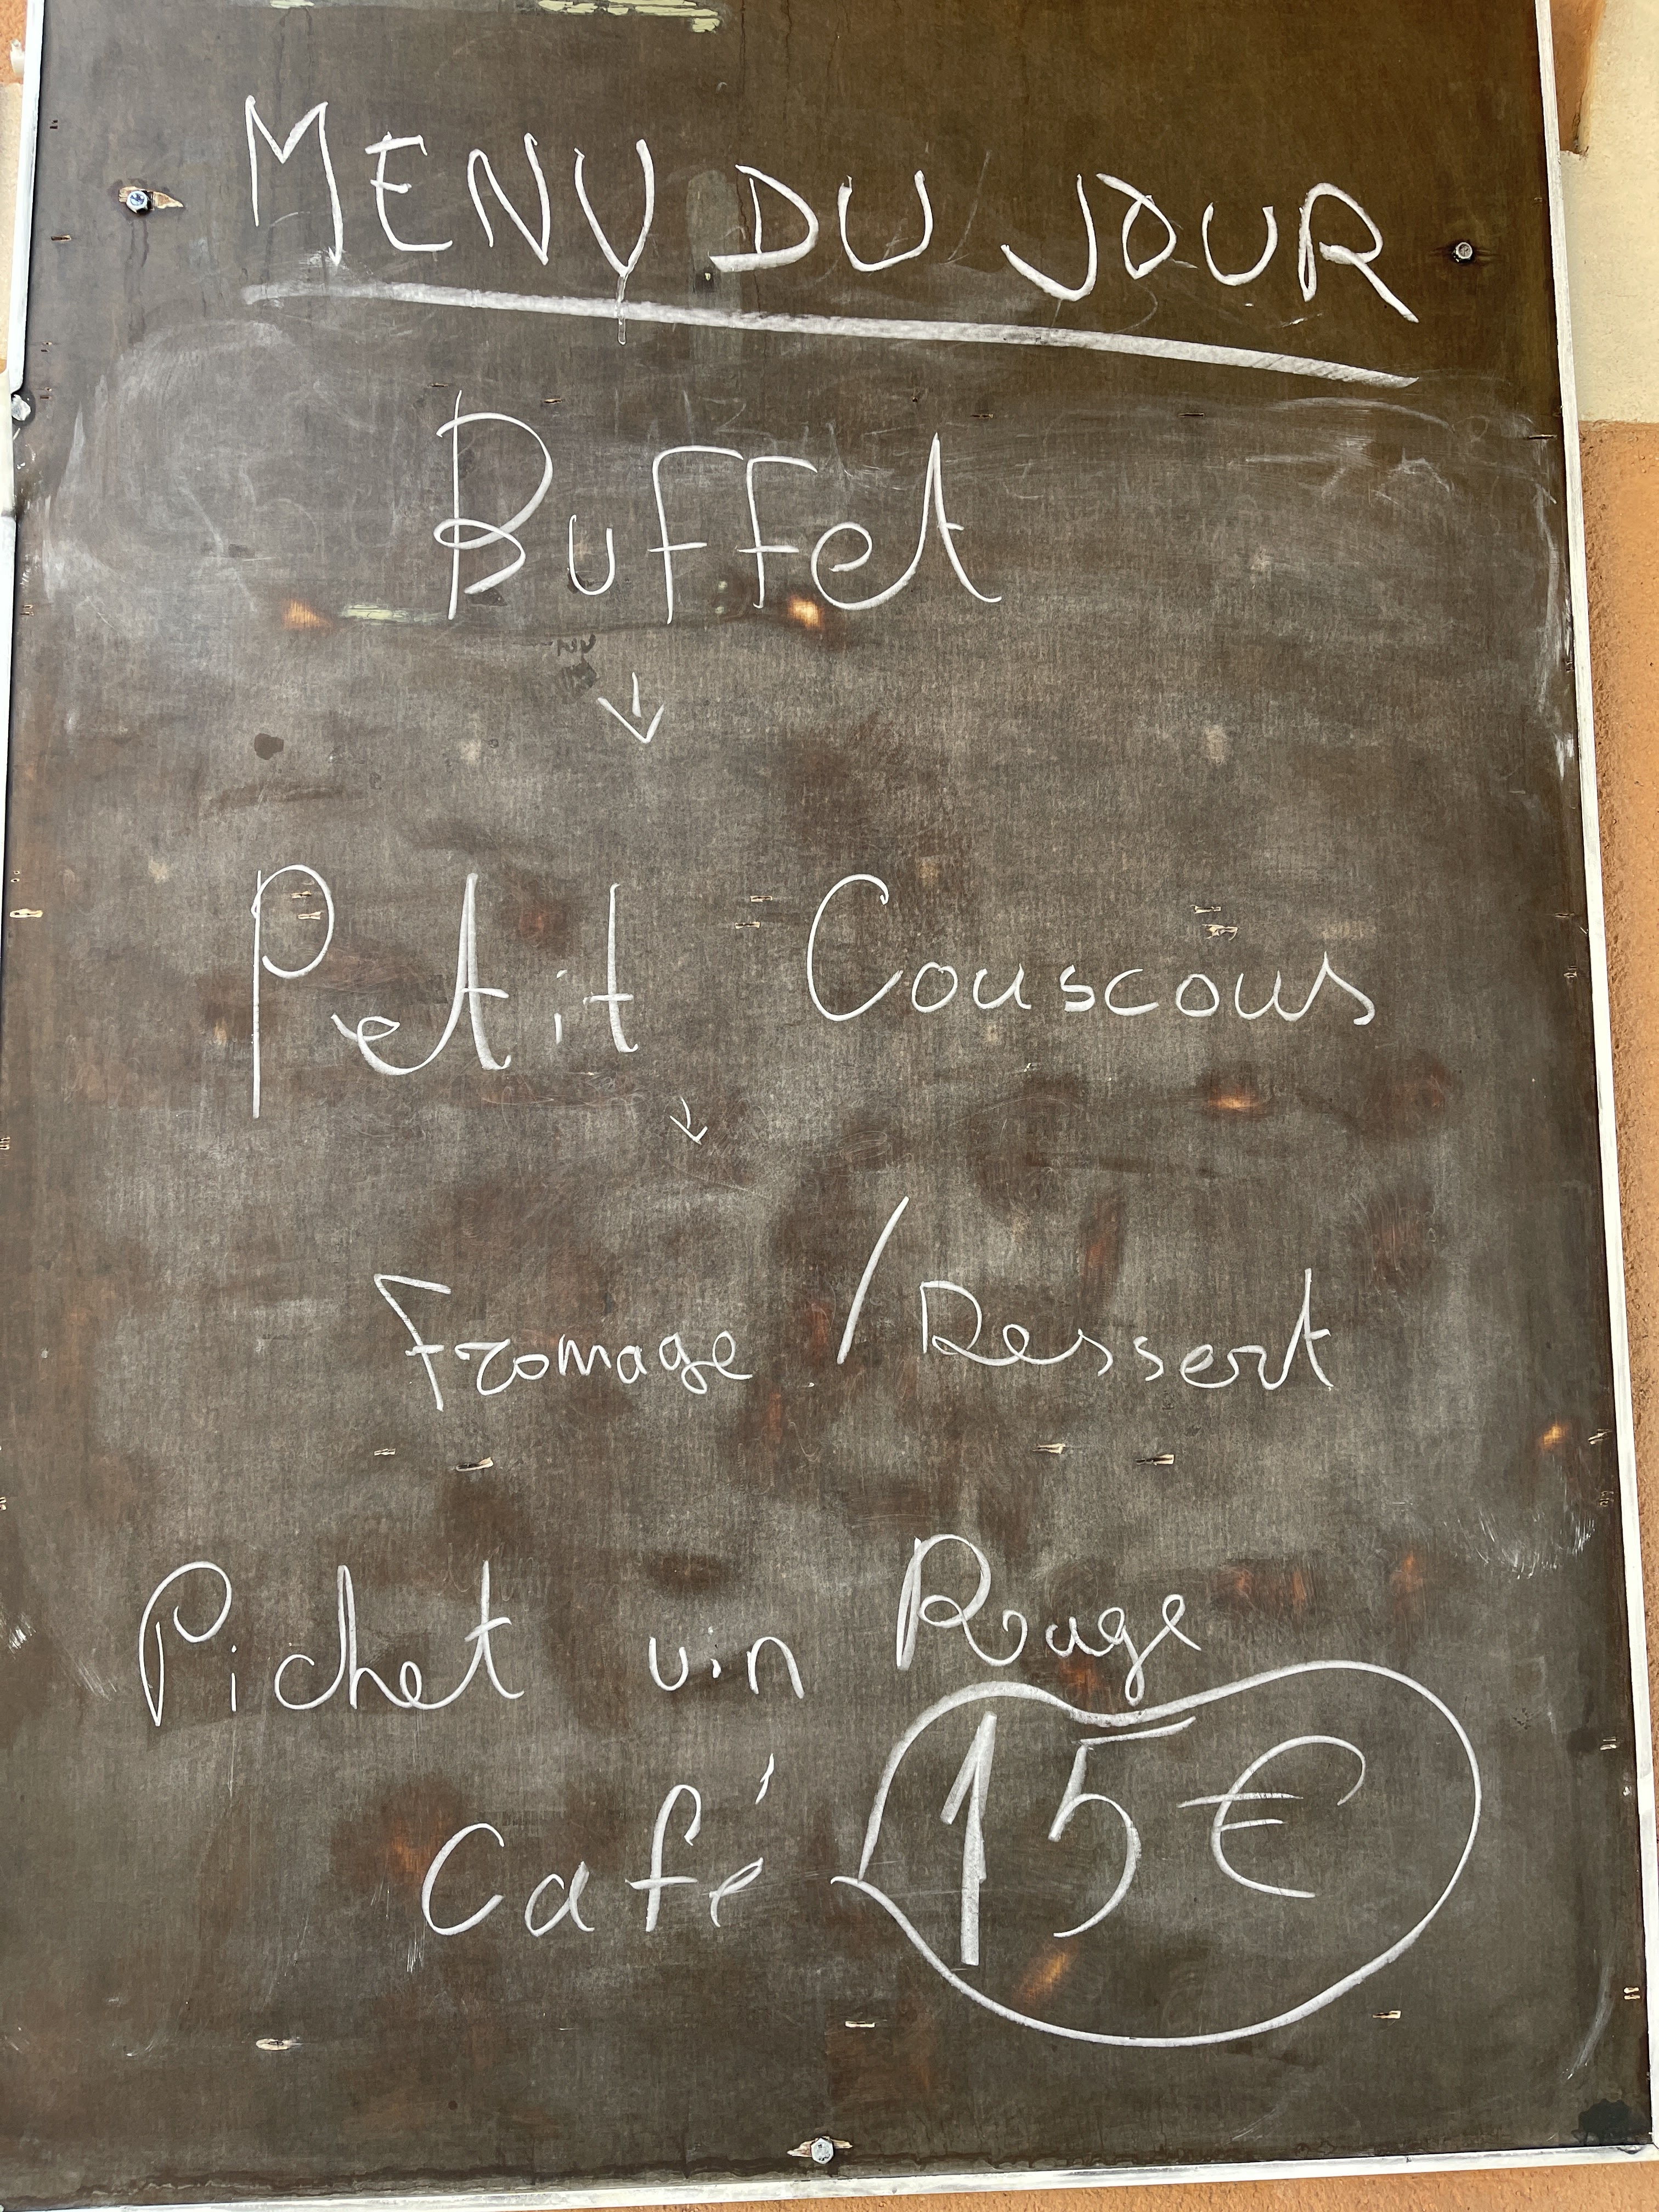 MENU DU JOUR
Buffet
↓
Petit Couscous
↓
Fromage / Dessert
Pichet vin Rouge
Café 15€